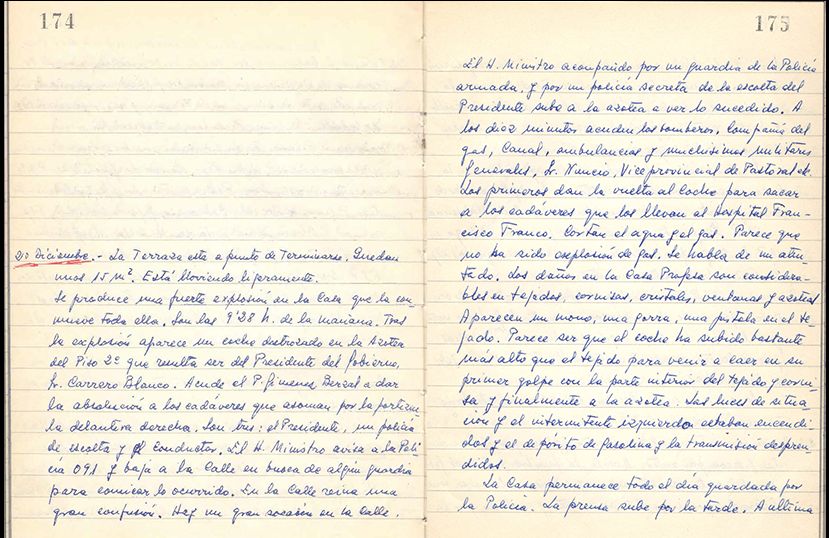 174
20 Diciembre.- La Terraza esta a punto de Terminarse, Quedan
unos 15 m². Está lloviendo ligeramente.
Se produce una fuerte explosión en la Casa que la con-
mueve toda ella. Son las 9'28 h. de la mañana. Tras
la explosión aparece un coche destrozado en la Azotea
del Piso 2º que resulta ser del Presidente del Gobierno,
Sr. Carrero Blanco. Acude el P. Jimenez Berzal a dar
la absolución a los cadáveres que asoman por la portezue-
la delantera derecha. Son tres: el Presidente, un policía
de escolta y el conductor. El H. Ministro avisa a la Poli-
cía 091 y baja a la Calle en busca de algún guardia
para comunicar lo ocurrido. En la Calle reina una
gran confusión. Hay un gran socavón en la Calle.
175
El H. Ministro acompañado por un guardia de la Policía
armada, y por un policía secreta de la escolta del
Presidente sube a la azotea a ver lo sucedido. A
los diez minutos acuden los bomberos, Compañía del
gas, Canal, ambulancias y muchisimos militares
Generales, Sr. Nuncio, Viceprovincial de Pastoral etc.
Los primeros dan la vuelta al coche para sacar
a los cadáveres que los llevan al Hospital Fran-
cisco Franco. Cortan el agua y el gas. Parece que
no ha sido explosión de gas. Se habla de un aten-
tado. Los daños en la Casa Profesa son considera-
bles en tejados, cornisas, cristales, ventanas y azoteas
Aparecen un mono, una gorra, una pistola en el te-
jado. Parece ser que el coche ha subido bastante
más alto que el tejido para venir a caer en su
primer golpe con la parte interior del tejido y corni-
sa y finalmente a la azotea. Las luces de situa-
ción y el intermitente izquierdo estaban encendi-
dos y el depósito de gasolina y la transmisión despren-
didos.
La Casa permanece todo el día guardada por
la Policía. La prensa sube por la tarde. A ultima